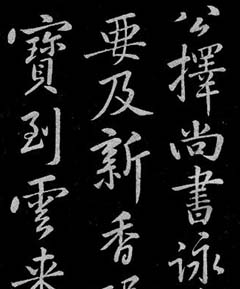 公擇尚書詠
要及新香
寶到雲来